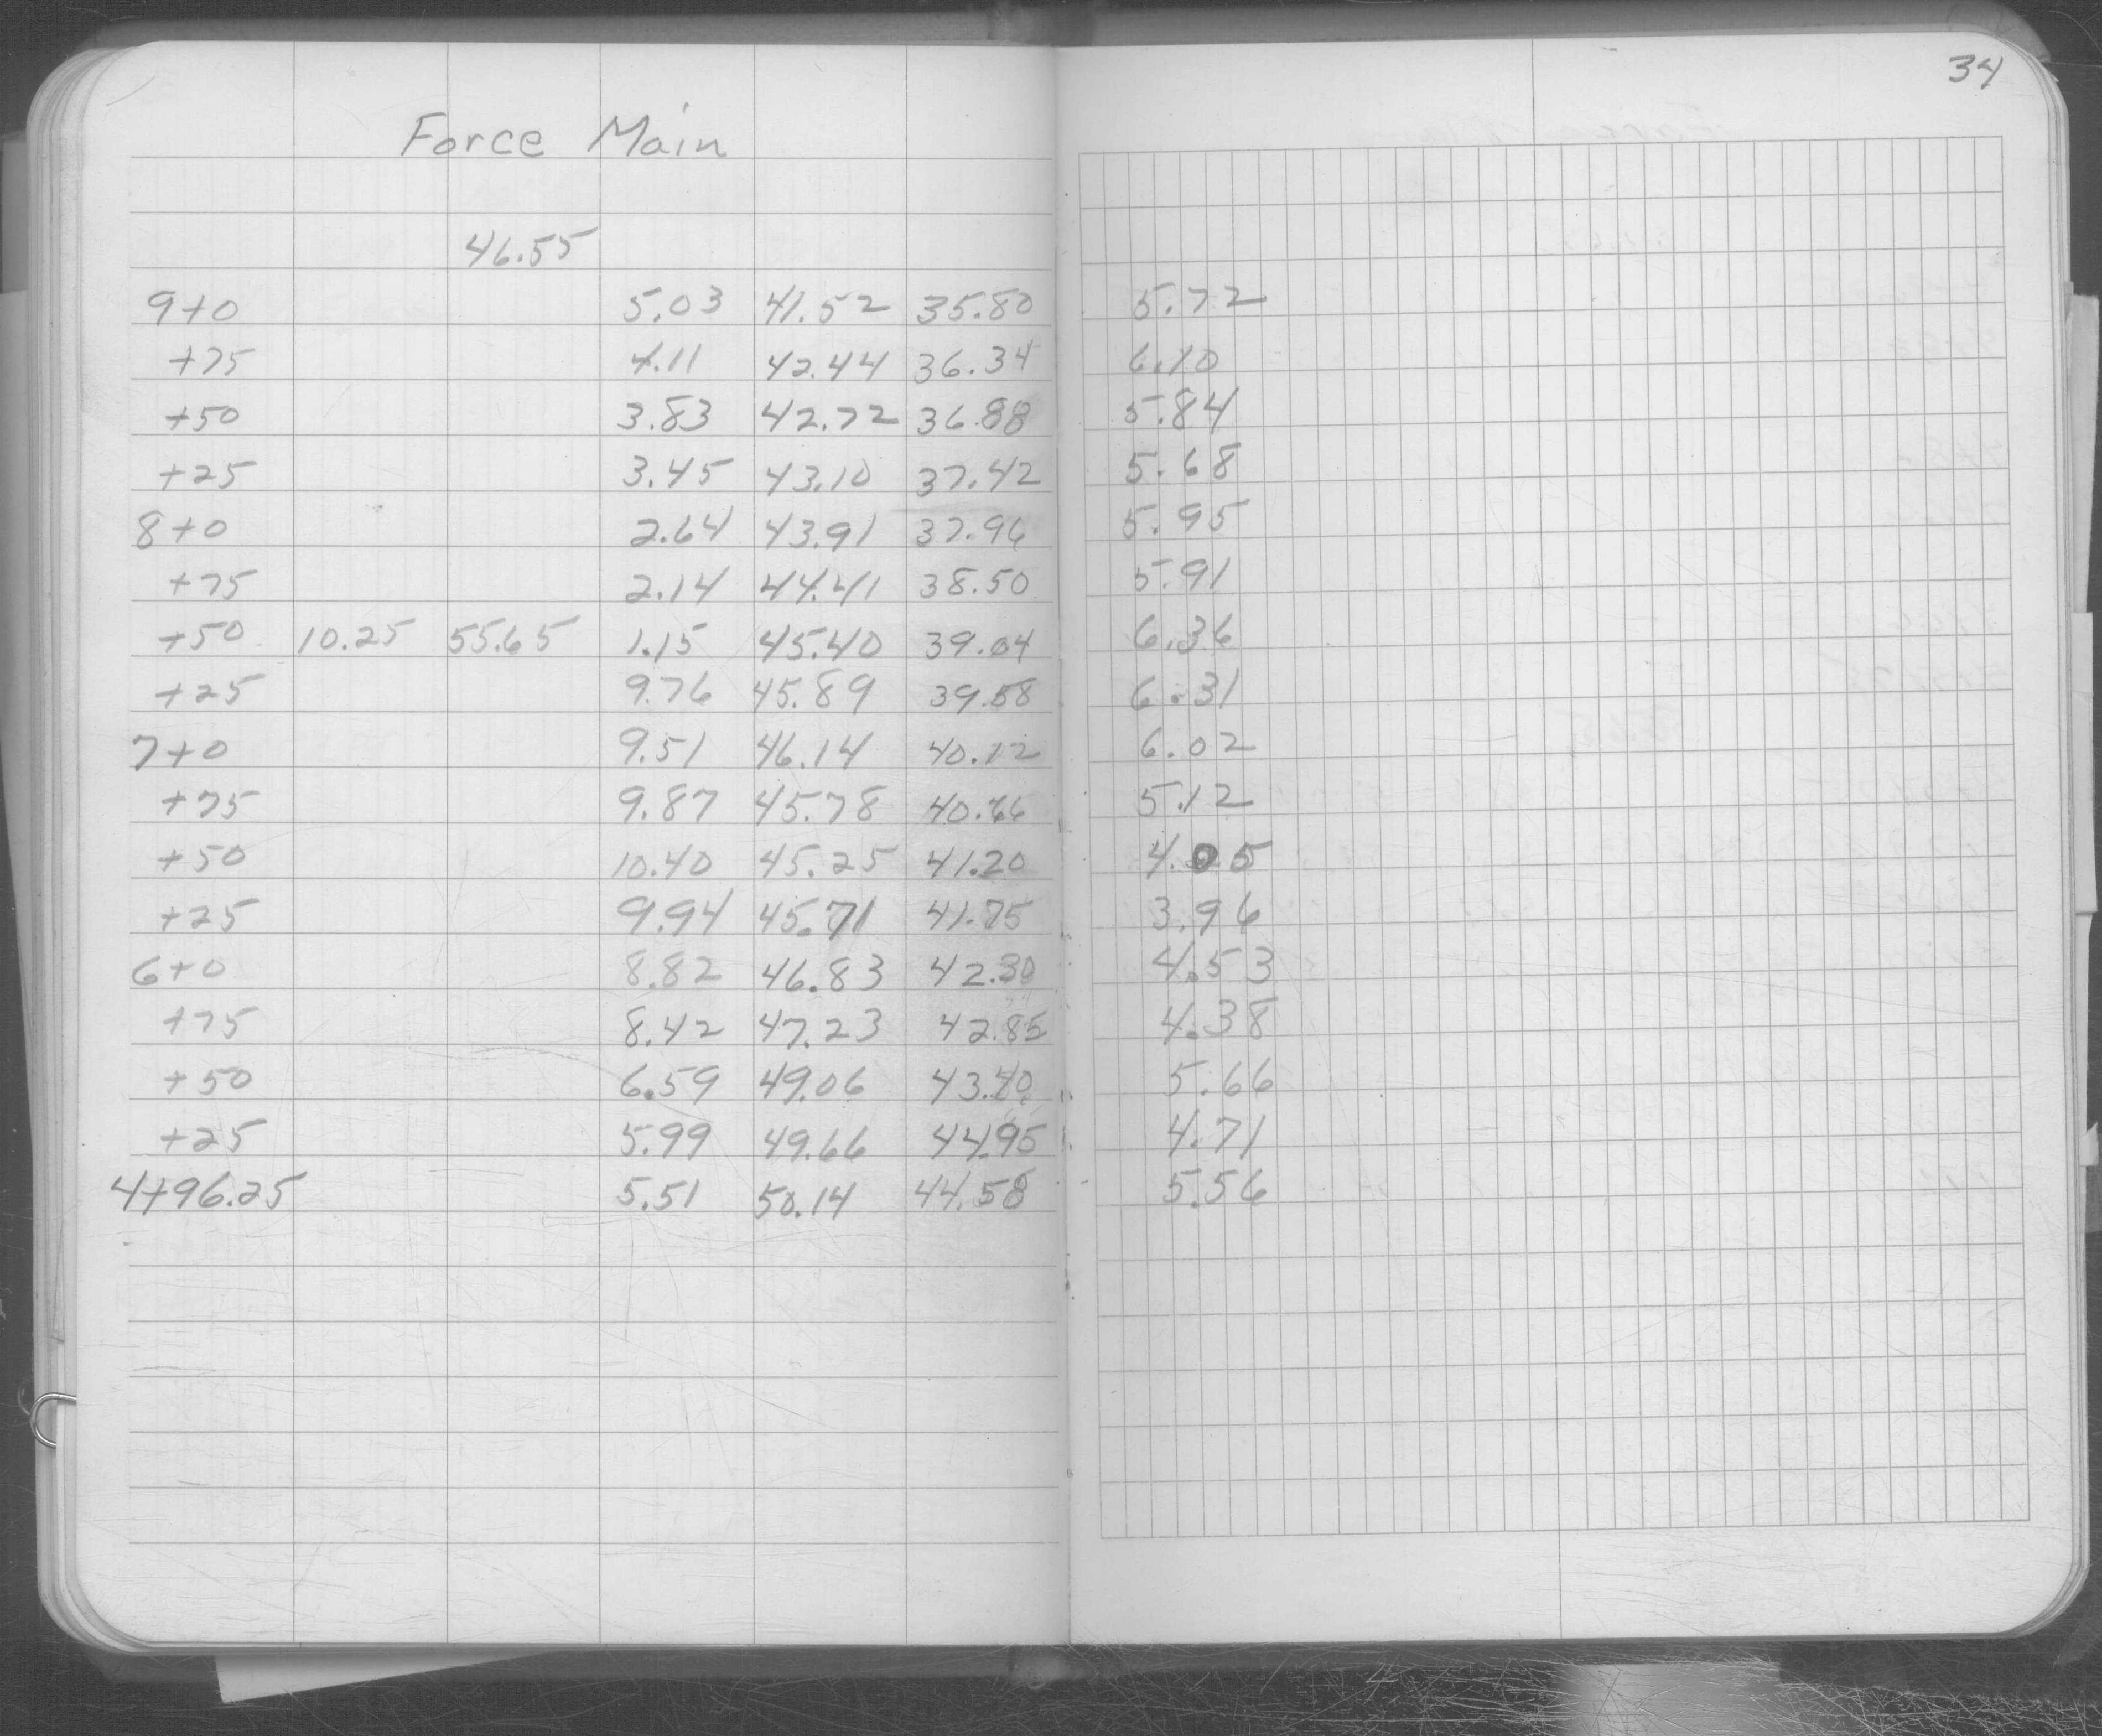 34
Force Main
46.55
9+0 5.03 41.52 35.80 5.72
+75 4.11 42.44 36.34 6.10
+50 3.83 42.72 36.88 5.84
+25 3.45 43.10 37.42 5.68
8+0 2.64 43.91 37.96 5.95
+75 2.14 44.41 38.50 5.91
+50 10.25 55.65 1.15 45.40 39.04 6.36
+25 9.76 45.89 39.58 6.31
7+0 9.51 46.14 40.12 6.02
+75 9.87 45.78 40.66 5.12
+50 10.40 45.25 41.20 4.05
+25 9.94 45.71 41.75 3.96
6+0 8.82 46.83 42.30 4.53
+75 8.42 47.23 42.85 4.38
+50 6.59 49.06 43.40 5.66
+25 5.99 49.66 44.95 4.71
4+96.25 5.51 50.14 44.58 5.56